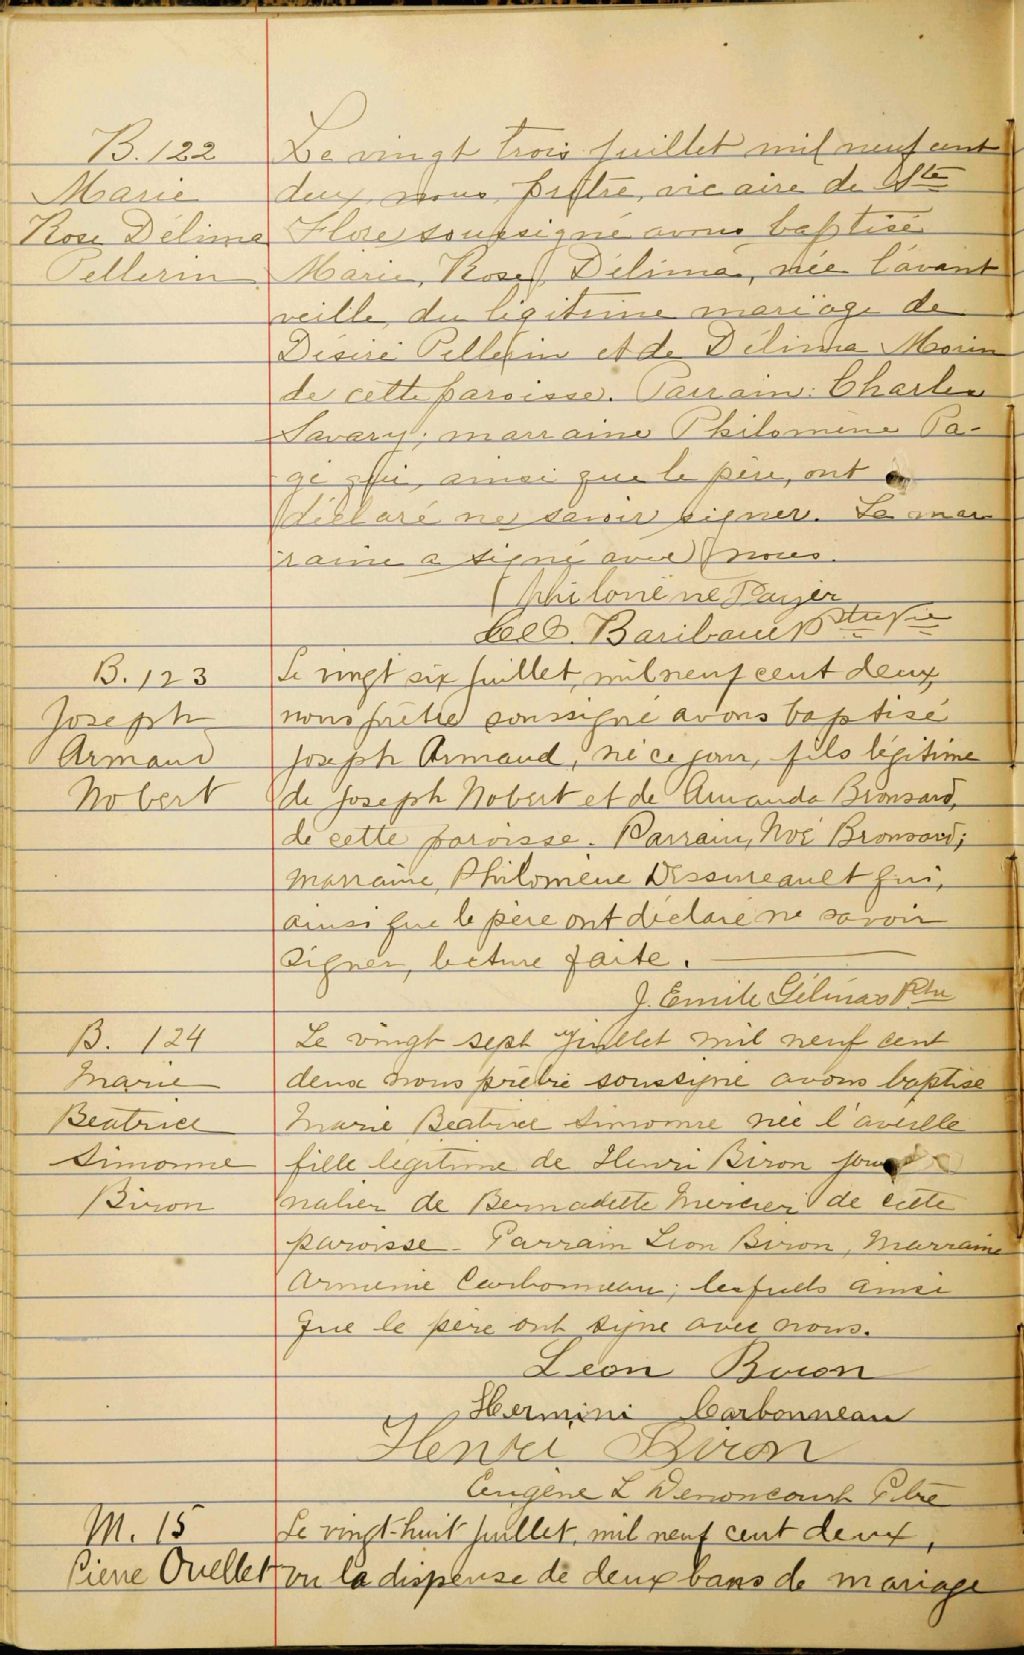 B. 122
Marie
Rose Délima
Pellerin
Le vingt trois juillet mil neuf cent
deux, nous, prêtre, vicaire de Ste
Flore soussigné avons baptisé
Marie, Rose, Délima, née l'avant
veille, du légitime mariage de
Désiré Pellerin et de Délima Morin
de cette paroisse. Parrain: Charles
Savary; marraine Philomène Pa-
gé qui, ainsi que le père, ont
déclaré ne savoir signer. La mar-
raine a signé avec nous.
Philomène Payer
Baribeau Ptre Vic
B. 123
Joseph
Armand
Nobert
Le vingt six juillet, mil neuf cent deux,
nous prêtre soussigné avons baptisé
Joseph Armand, né ce jour, fils légitime
de Joseph Nobert et de Amanda Bronsard,
de cette paroisse. Parrain, Noé Bronsard;
marraine, Philomène Dessureault qui,
ainsi que le père ont déclaré ne savoir
signer, lecture faite.
J. Emile Gélinas Ptre
B. 124
Marie
Beatrice
Simonne
Biron
Le vingt sept juillet mil neuf cent
deux nous prêtre soussigné avons baptisé
Marie Beatrice Simonne née l'aveille
fille legitime de Henri Biron jour
nalier de Bernadette Mercier de cette
paroisse - Parrain Leon Biron, Marraine
Armenie Carbonneau; lesquels ainsi
que le père ont signe avec nous.
Leon Biron
Hermini Carbonneau
Henri Biron
Eugène L Denoncourt Ptre
M. 15
Pierre Ouellet
Le vingt-huit juillet, mil neuf cent deux,
vu la dispense de deux bans de mariage